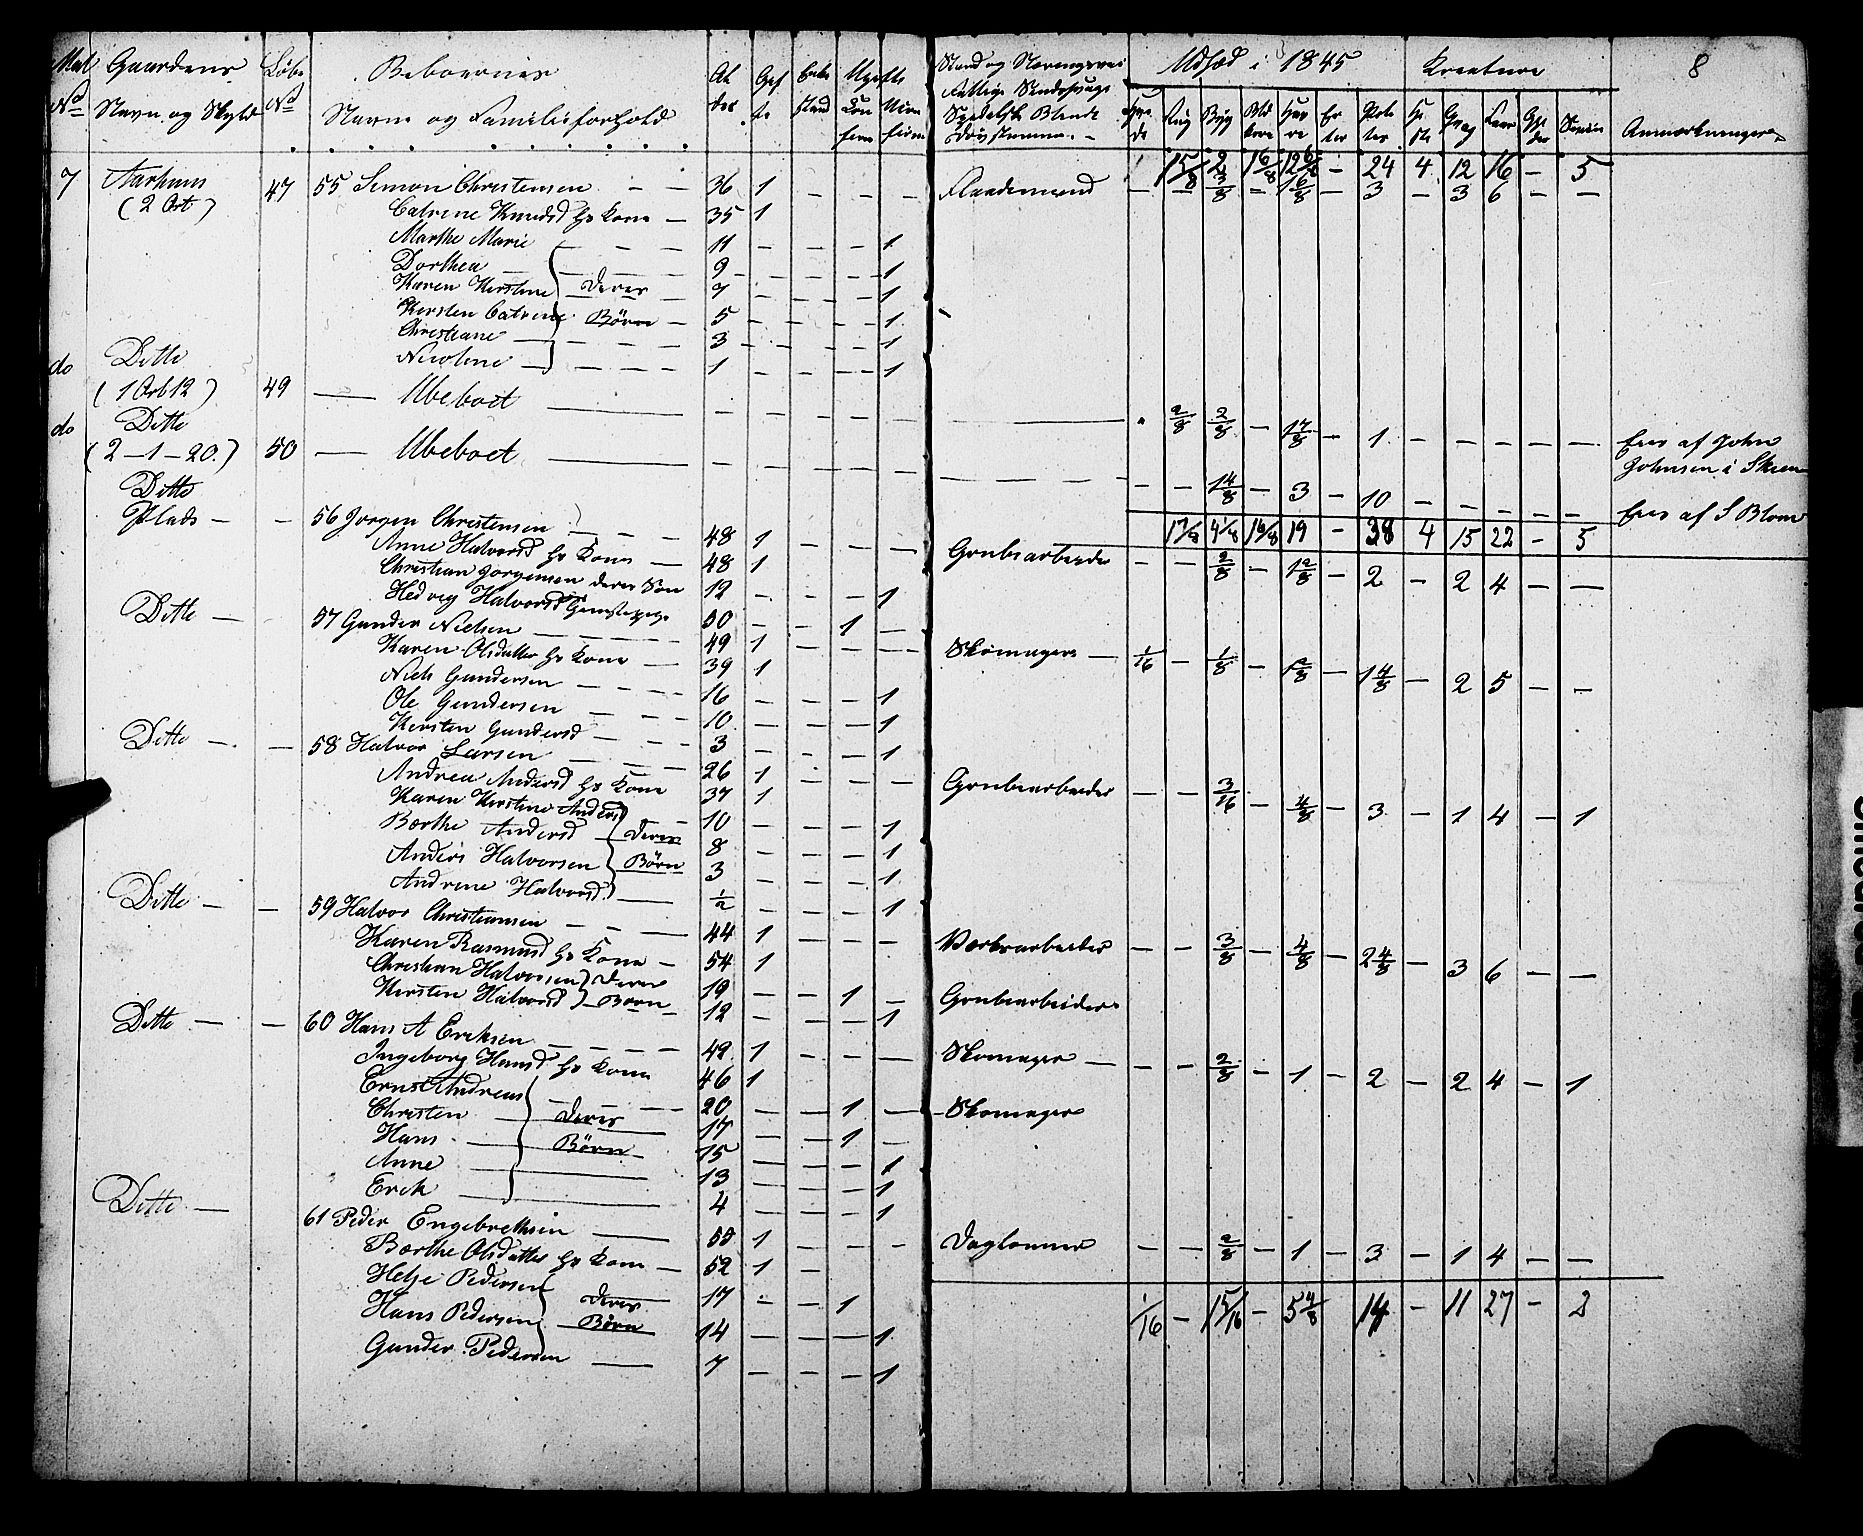 8
Mat No Gaardens Navn og Skyld Løbe No Beboernes Navne og Familieforhold Al der Gif te Enke stand Ugifte
Udsæd i 1845 Kreature Anmærkninger
Rug Byg Er ter
15/8 2 16/8 12 6/8 — 24 4 12 16 — 5
7 Aarhuus 47 55 Simon Christensen — — 36 1 — — — — Gaardmand — — 3/8 — 1 6/8 — 3 — 3 6 — —
(2 Ort)
Catrine Knudsd hs Kone — 35 1
Marthe Marie — — — 11 — — — 1
Dorthea — — — 9 — — — 1
Karen Kirstine — Deres — 7 — — — 1
Kirsten Catrine Børn — 5 — — — 1
Christiane — — — 3 — — — 1
Nicoline — — — 1 — — — 1
do Ditte
(1 Ort 12) 49 — Ubeboet — — — — — — 2/8 2/8 — 1 4/8 — 1 — — — — — Eies af John
Johnsen i Skien
do Ditte
(2—1—20.) 50 — Ubeboet — — — — — — — — 1 4/8 — 3 — 10 — — — — — Eies af S Blom
17/8 4 1/8 16/8 19 — 38 4 15 22 — 5
Ditte
Plads — — 56 Jørgen Christensen — — 48 1 — — — Grubearbeider — — 2/8 — 1 2/8 — 2 — 2 4 — —
Anne Halvorsd hs Kone — 48 1
Christian Jørgensen deres Søn 12 — — — 1
Hedvig Halvorsd 50 — — 1 —
Ditte — — 57 Gunder Nielsen — — — 49 1 — — — Skomager — 1/16 — 1/8 — 1 2/8 — 1 4/8 — 2 5 — —
Karen Olsdatter hs Kone — 39 1
Niels Gundersen — — — 16 — — — 1
Ole Gundersen — — — 10 — — — 1
Kirsten Gundersd — — — 3 — — — 1
Ditte — — 58 Halvor Larsen — — — 26 1 — — — Grubearbeider — — 3/16 — 4/8 — 3 — 1 4 — 1
Andrea Andersd hs Kone 37 1
Karen Kirstine Andersd 10 — — — 1
Børthe Andersd — Deres 8 — — — 1
Anders Halvorsen Børn 3 — — — 1
Andrine Halvorsd — 1/2 — — — 1
Ditte — — 59 Halvor Christiansen — — — 44 1 — — — Værksarbeider — — 3/8 — 4/8 — 2 4/8 — 3 6 — —
Karen Rasmusd hs Kone — 54 1
Christian Halvorsen Deres 19 — — 1 — Grubearbeider
Kirsten Halvorsd — Børn — 12 — — — 1
Ditte — — 60 Hans A Eriksen — — — 49 1 — — — Skomager — — — 2/8 — 1 — 2 — 2 4 — 1
Ingeborg Hansd hs Kone 46 1
Ernst Andreas — — — 20 — — 1 — Skomager
Christen — Deres 17 — — 1 —
Hans — Børn — 15 — — — 1
Anne — 13 — — — 1
Erick — 4 — — — 1
Ditte — 61 Peder Engebrethsen — 55 1 — — — Daglønner — — 2/8 — 1 — 3 — 1 4 — —
Børthe Olsdatter hs Kone — 52 1 —
Helje Pedersen Deres 17 — — 1
Hans Pedersen — Børn 14 — — — 1
Gunder Pedersen — 7 — — — 1
1/16 — 15/16 — 5 4/8 14 — 11 27 — 2